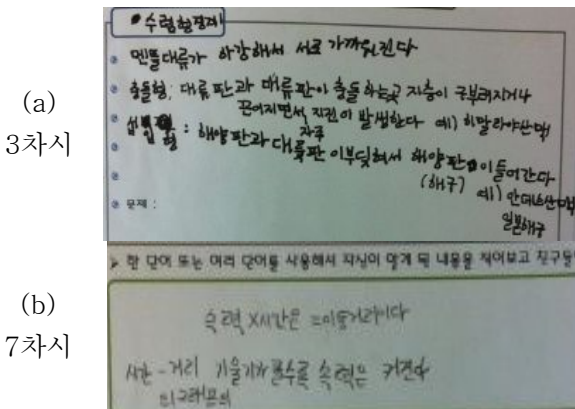 (a)
3차시
• 수렴형경계
맨틀대류가 하강해서 서로 가까워진다
충돌형; 대륙판과 대륙판이 충돌하는곳 지층이 구부러지거나
끊어지면서, 지진이 자주 발생한다 예) 히말라야산맥
섭입형 : 해양판과 대륙판이부딪혀서 해양판이들어간다
(해구) 예) 안데스산맥
일본해구
문제 :
(b)
7차시
한 단어 또는 여러 단어를 사용해서 자신이 알게 된 내용을 적어보고 친구들
속력X시간은 =이동거리이다
시간-거리 기울기가 클수록 속력은 커진다
의그래프의